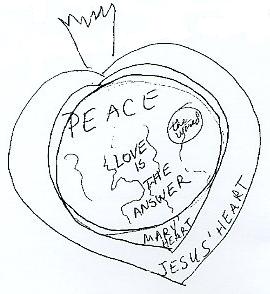 PEACE
the world
LOVE
IS
THE
ANSWER
MARY'
HEART
JESUS' HEART